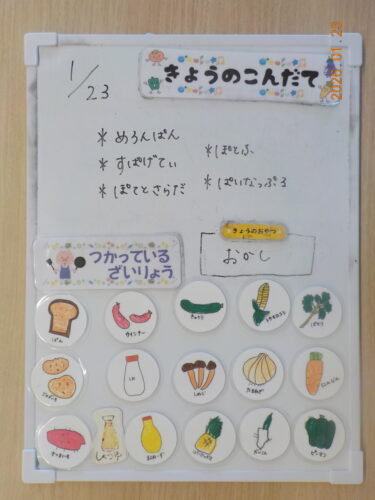 2026.01.23
1/23
きょうのこんだて
*めろんぱん
*すぱげてぃ
*ぽてとさらだ
*ぽとふ
*ぱいなっぷる
きょうのおやつ
おかし
つかっている
ざいりょう
ぱん
ウインナー
きゅうり
とうもろこし
ぱせり
じゃがいも
しお
しめじ
たまねぎ
にんじん
さつまいも
しょうゆ
まよねーず
ぱいなっぷる
だいこん
ピーマン